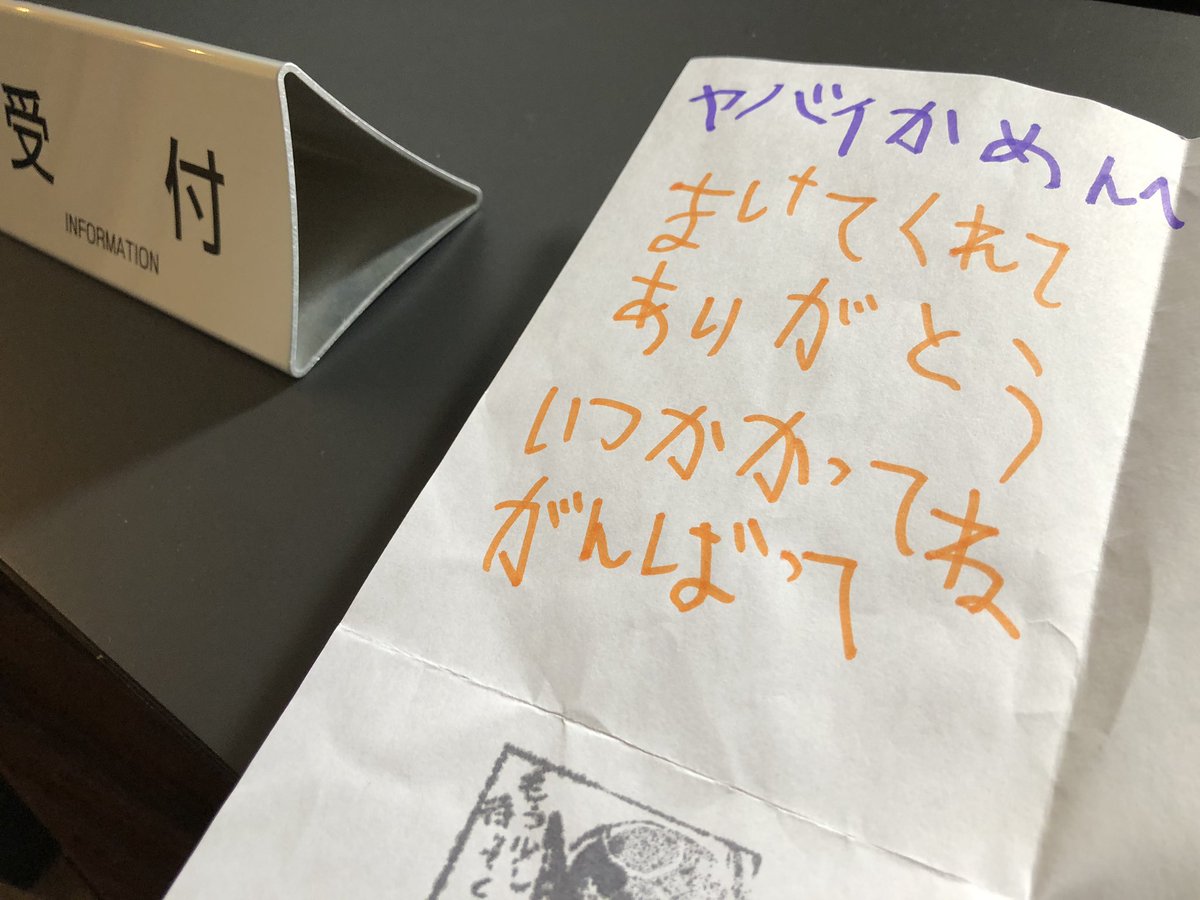 受付
INFORMATION
ヤバイかめんへ
まけてくれて
ありがとう
いつかかってね
がんばって
もう少し